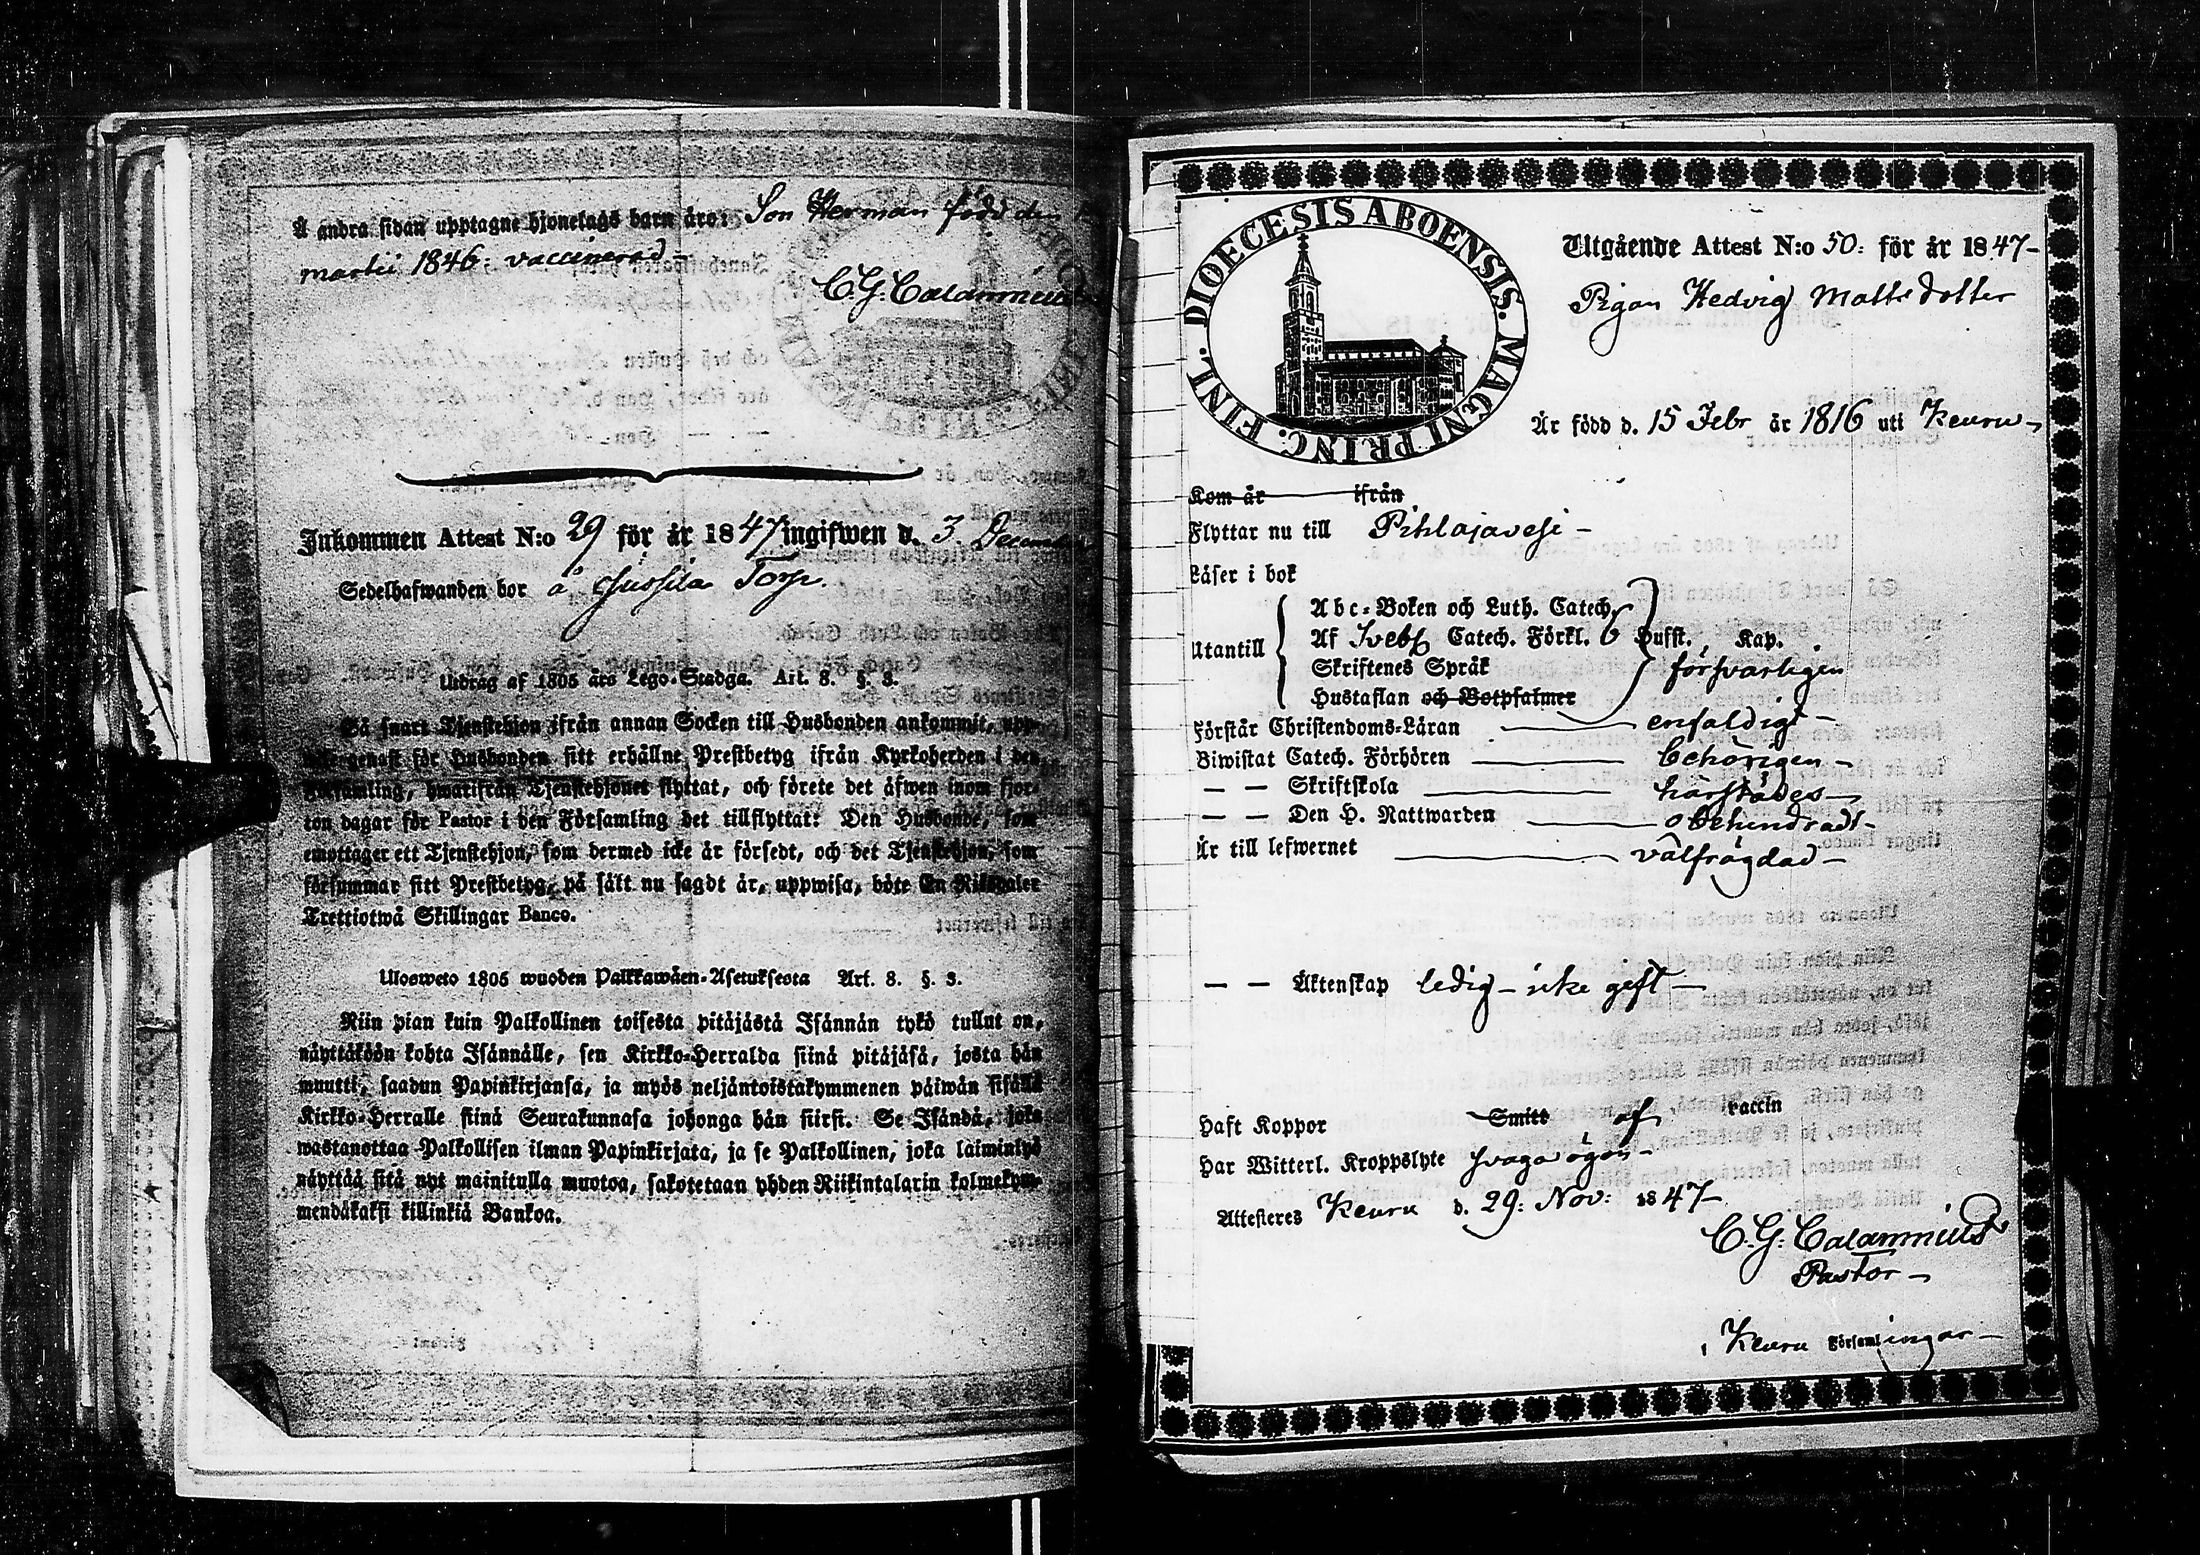 Å andra sidan upptagne hjonelags barn äro: Son Herman född den
martii 1846: vaccinerad –
C. G. Calamnius
Inkommen Attest N:o 29 för år 1847 ingifwen d. 3. December
Sedelhafwanden bor å Jussila Torp.
Utdrag af 1805 års Lego-Stadga. Art. 8. §. 3.
Så snart Tjenstehjon ifrån annan Socken till Husbonden ankommit, upp-
för Husbonden sitt erhållne Prestbetyg ifrån Kyrkoherden i den
Församling, hwarifrån Tjenstehjonet flyttat, och förete det äfwen inom fjor-
ton dagar för Pastor i den Församling det tillflyttat: Den Husbonde, som
emottager ett Tjenstehjon, som dermed icke är försedt, och det Tjenstehjon, som
försummar sitt Prestbetyg, på sätt nu sagdt är, uppwisa, böte En Riksdaler
Trettiotwå Skillingar Banco.
Ulosweto 1805 wuoden Palkkawäen-Asetuksesta Art. 8. §. 3.
Niin pian kuin Palkollinen toisesta pitäjästä Isännän tykö tullut on,
näyttäköön kohta Isännälle, sen Kirkko-Herralda siinä pitäjäsä, josta hän
muutti, saadun Papinkirjansa, ja myös neljäntoistakymmenen päiwän sisällä
Kirkko-Herralle siinä Seurakunnasa johonga hän siirsi. Se Isändä, joka
wastanottaa Palkollisen ilman Papinkirjata, ja se Palkollinen, joka laiminlyö
näyttää sitä nyt mainitulla muotoa, sakotetaan yhden Riikintalarin kolmekym-
mendäkaksi killinkiä Bankoa.
DIOECESIS ABOENSIS. MAGNI PRINC. FINL.
Utgående Attest N:o 50: för år 1847 –
Pigan Hedvig Mattsdotter
Är född d. 15 Febr år 1816 uti Keuru –
Kom år ifrån
Flyttar nu till Pihlajavesi –
Läser i bok
Abc-Boken och Luth. Catech.
Utantill Af Sveb. Catech. Förkl. 6 Hufst. Kap.
Skriftenes Språk försvarligen
Hustaflan och Botpsalmer
Förstår Christendoms-Läran enfaldigt –
Biwistat Catech. Förhören behörigen –
— — Skriftskola härstädes –
— — Den H. Nattwarden obehindradt –
Är till lefwernet välfrägdad –
— — Äktenskap ledig – icke gift –
Haft Koppor Smitt af vaccin
Har Witterl. Kroppslyte svaga ögon –
Attesteres Keuru d. 29: Nov: 1847 –
C. G. Calamnius
Pastor –
i Keuru Församlingar –